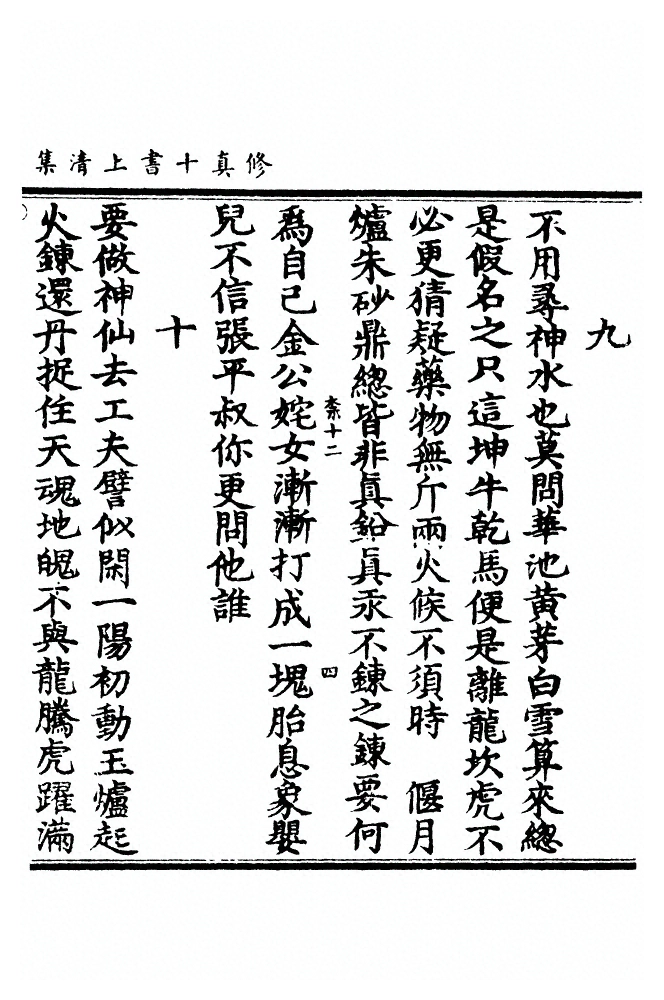 修真十書上清集
九
不用尋神水也莫問華池黃芽白雪算來總
是假名之只這坤牛乾馬便是離龍坎虎不
必更猜疑藥物無斤兩火候不須時　偃月
爐朱砂鼎總皆非真鉛真汞不鍊之鍊要何
柰十二
四
為自己金公姹女漸漸打成一塊胎息象嬰
兒不信張平叔你更問他誰
十
要做神仙去工夫譬似閑一陽初動玉爐起
火鍊還丹捉住天魂地魄不與龍騰虎躍滿